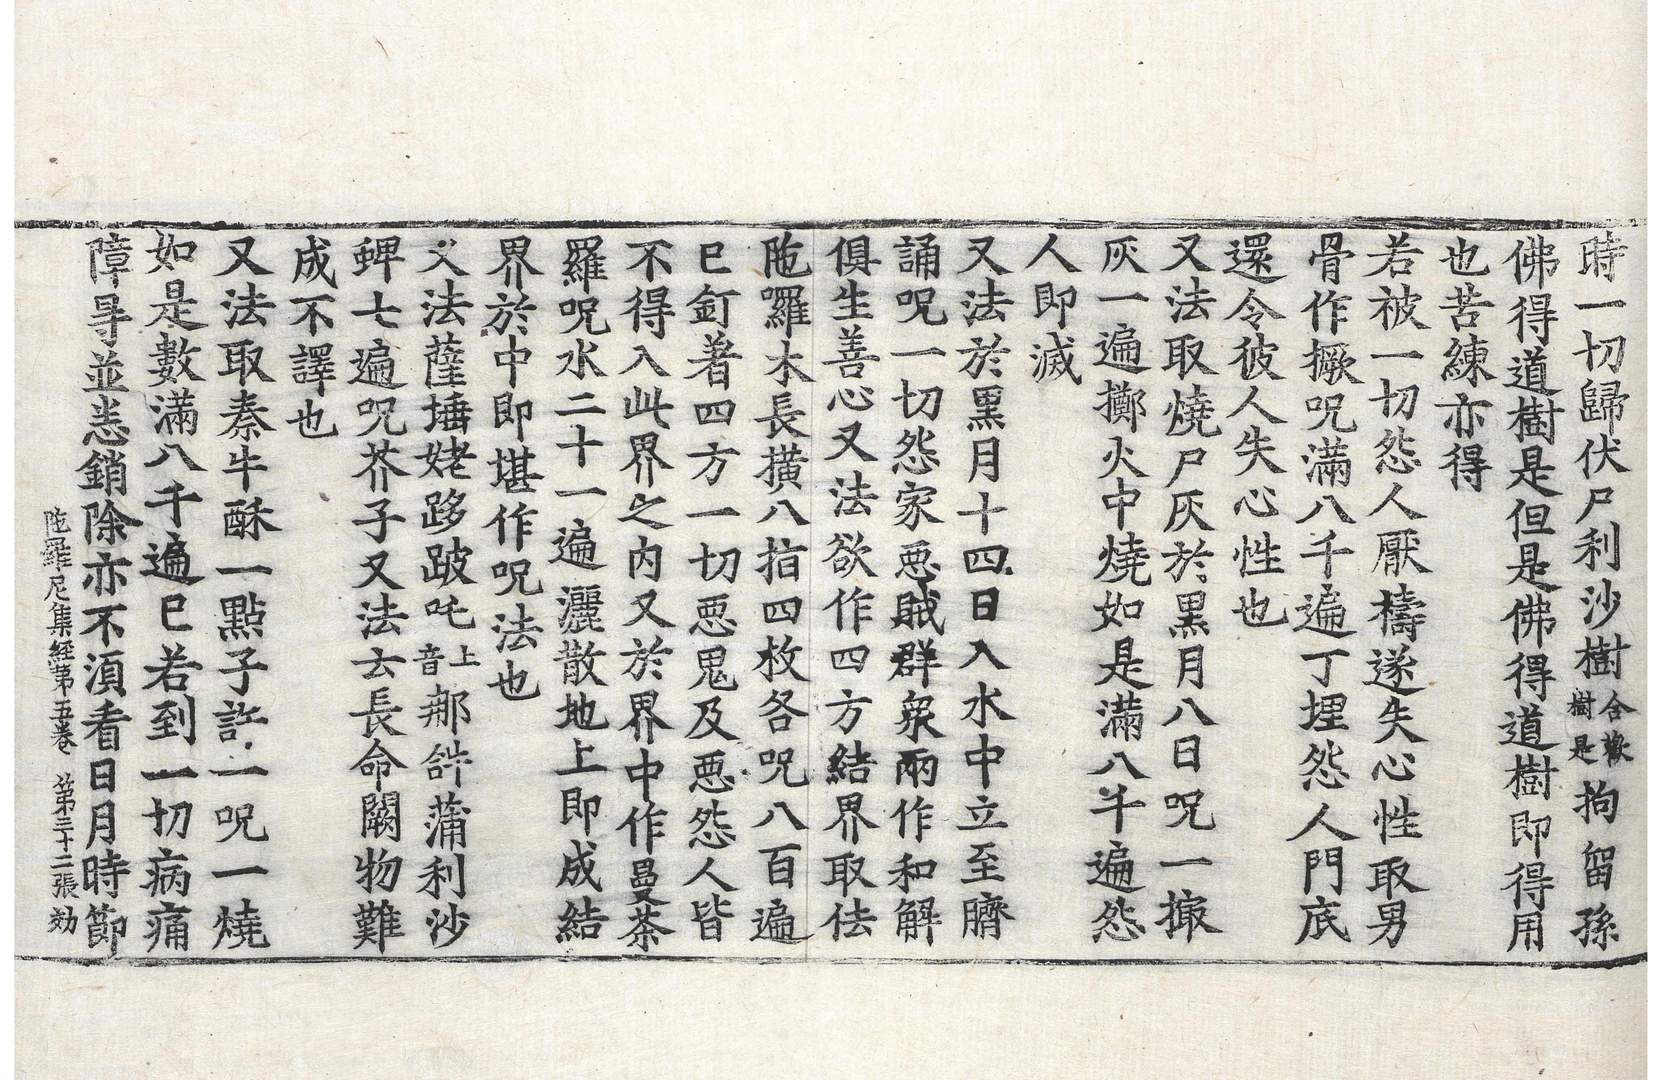 時一切歸伏尸利沙樹合歡樹是拘留孫
佛得道樹是但是佛得道樹即得用
也苦練亦得
若被一切怨人厭禱遂失心性取男
骨作撅呪滿八千遍丁埋怨人門底
還令彼人失心性也
又法取燒尸灰於黒月八日呪一撮
灰一遍擲火中燒如是滿八千遍怨
人即滅
又法於黒月十四日入水中立至臍
誦呪一切怨家惡賊群衆兩作和解
俱生善心又法欲作四方結界取佉
陁囉木長擴八指四枚各呪八百遍
已釘著四方一切惡鬼及惡怨人皆
不得入此界之内又於界中作曼茶
羅呪水二十一遍灑散地上即成結
界於中即堪作呪法也
又法薩埵姥跢跛吒上音那鉡蒲利沙
蜱七遍呪芥子又法去長命闕物難
成不譯也
又法取秦牛酥一點子許一呪一燒
如是數滿八千遍已若到一切病痛
障㝵並悉銷除亦不湏看日月時節
陁羅尼集經第五卷 第三十二張 効